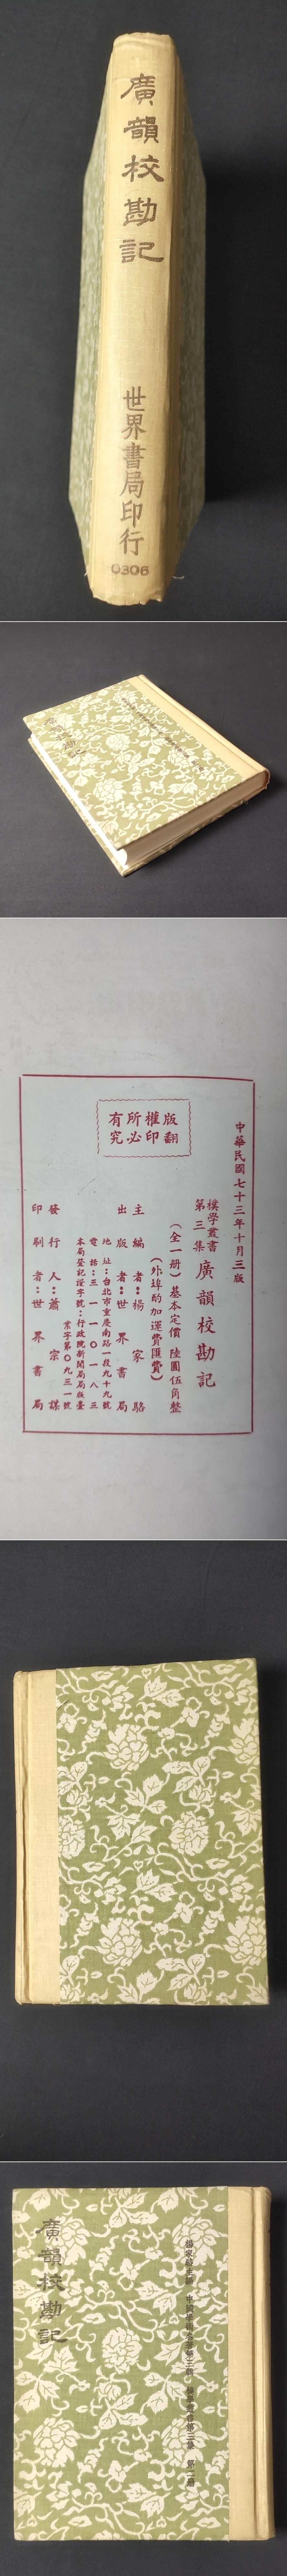 廣韻校勘記
世界書局印行
0306
中華民國七十三年十月三版
樸學叢書
第三集
廣韻校勘記
(全一册)基本定價 陸圓伍角整
(外埠酌加運費匯費)
主編者:楊家駱
出版者:世界書局
地址:台北市重慶南路一段九十九號
電話:三一一〇一八三
本局登記證字號:行政院新聞局局版臺
業字第〇九三一號
發行人:蕭宗謀
印刷者:世界書局
版權所有
翻印必究
廣韻校勘記
楊家駱主編 中國學術名著第三輯 樸學叢書第三集 第二册